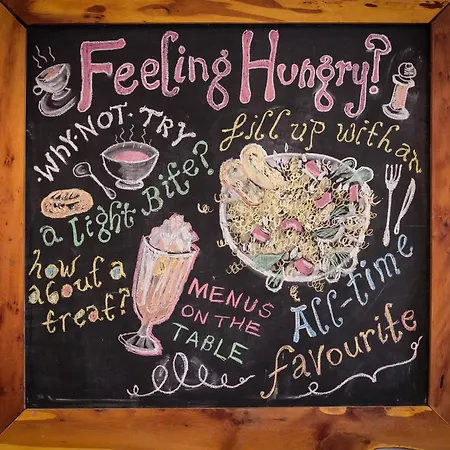 Feeling Hungry?
WHY·NOT·TRY
a light Bite?
fill up with an
All-time
favourite
how
about a
treat?
MENUS
ON THE
TABLE